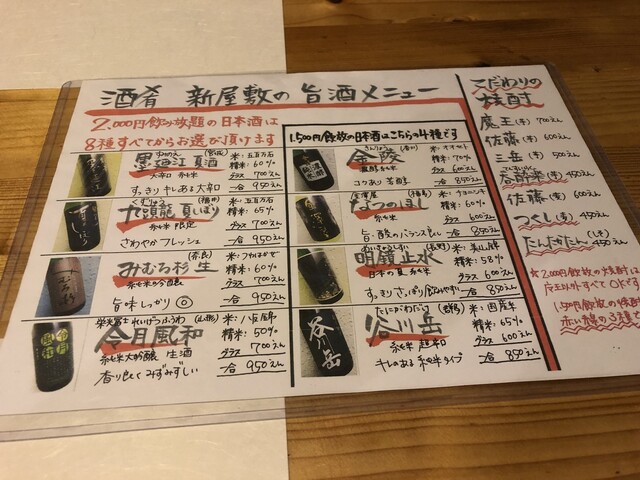 酒肴 新屋敷の旨酒メニュー
2,000円飲み放題の日本酒は
8種すべてからお選び頂けます
墨廼江 夏酒 (宮城)
大辛口 純米
すっきりキレある大辛口
米:五百万石
精米:60%
グラス 700えん
一合 950えん
九頭龍 夏しぼり (福井)
純米 限定
さわやか フレッシュ
米:五百万石
精米:65%
グラス 700えん
一合 950えん
みむろ杉 生 (奈良)
純米吟醸
旨味しっかり ◎
精米:60%
グラス 700えん
一合 950えん
栄光冨士 れいげつふうわ (山形)
令月風和
純米大吟醸 生酒
香り良く みずみずしい
精米:50%
グラス 700えん
一合 950えん
1,500円飲放の日本酒はこちらの4種です
金陵 (香川)
コクあり
米:オオセト
精米:70%
グラス 600えん
一合 850えん
なつのほし (福島)
純米
旨・酸のバランス良し
精米:60%
グラス 600えん
一合 850えん
明鏡止水 (長野)
日本の夏 純米
すっきり さっぱり 飲みやすい
米:美山錦
精米:58%
グラス 600えん
一合 850えん
たにがわだけ (群馬)
谷川岳
純米 超辛口
キレのある 純米タイプ
米:国産米
精米:65%
グラス 600えん
一合 850えん
こだわりの
焼酎
魔王(芋) 700えん
佐藤(芋) 600えん
三岳(芋) 500えん
450えん
佐藤(麦) 600えん
つくし(麦) 450えん
たんたかたん(しそ) 450えん
★2,000円飲放の焼酎は
魔王以外すべてOKです
1,500円飲放の焼酎は
赤い線の3種